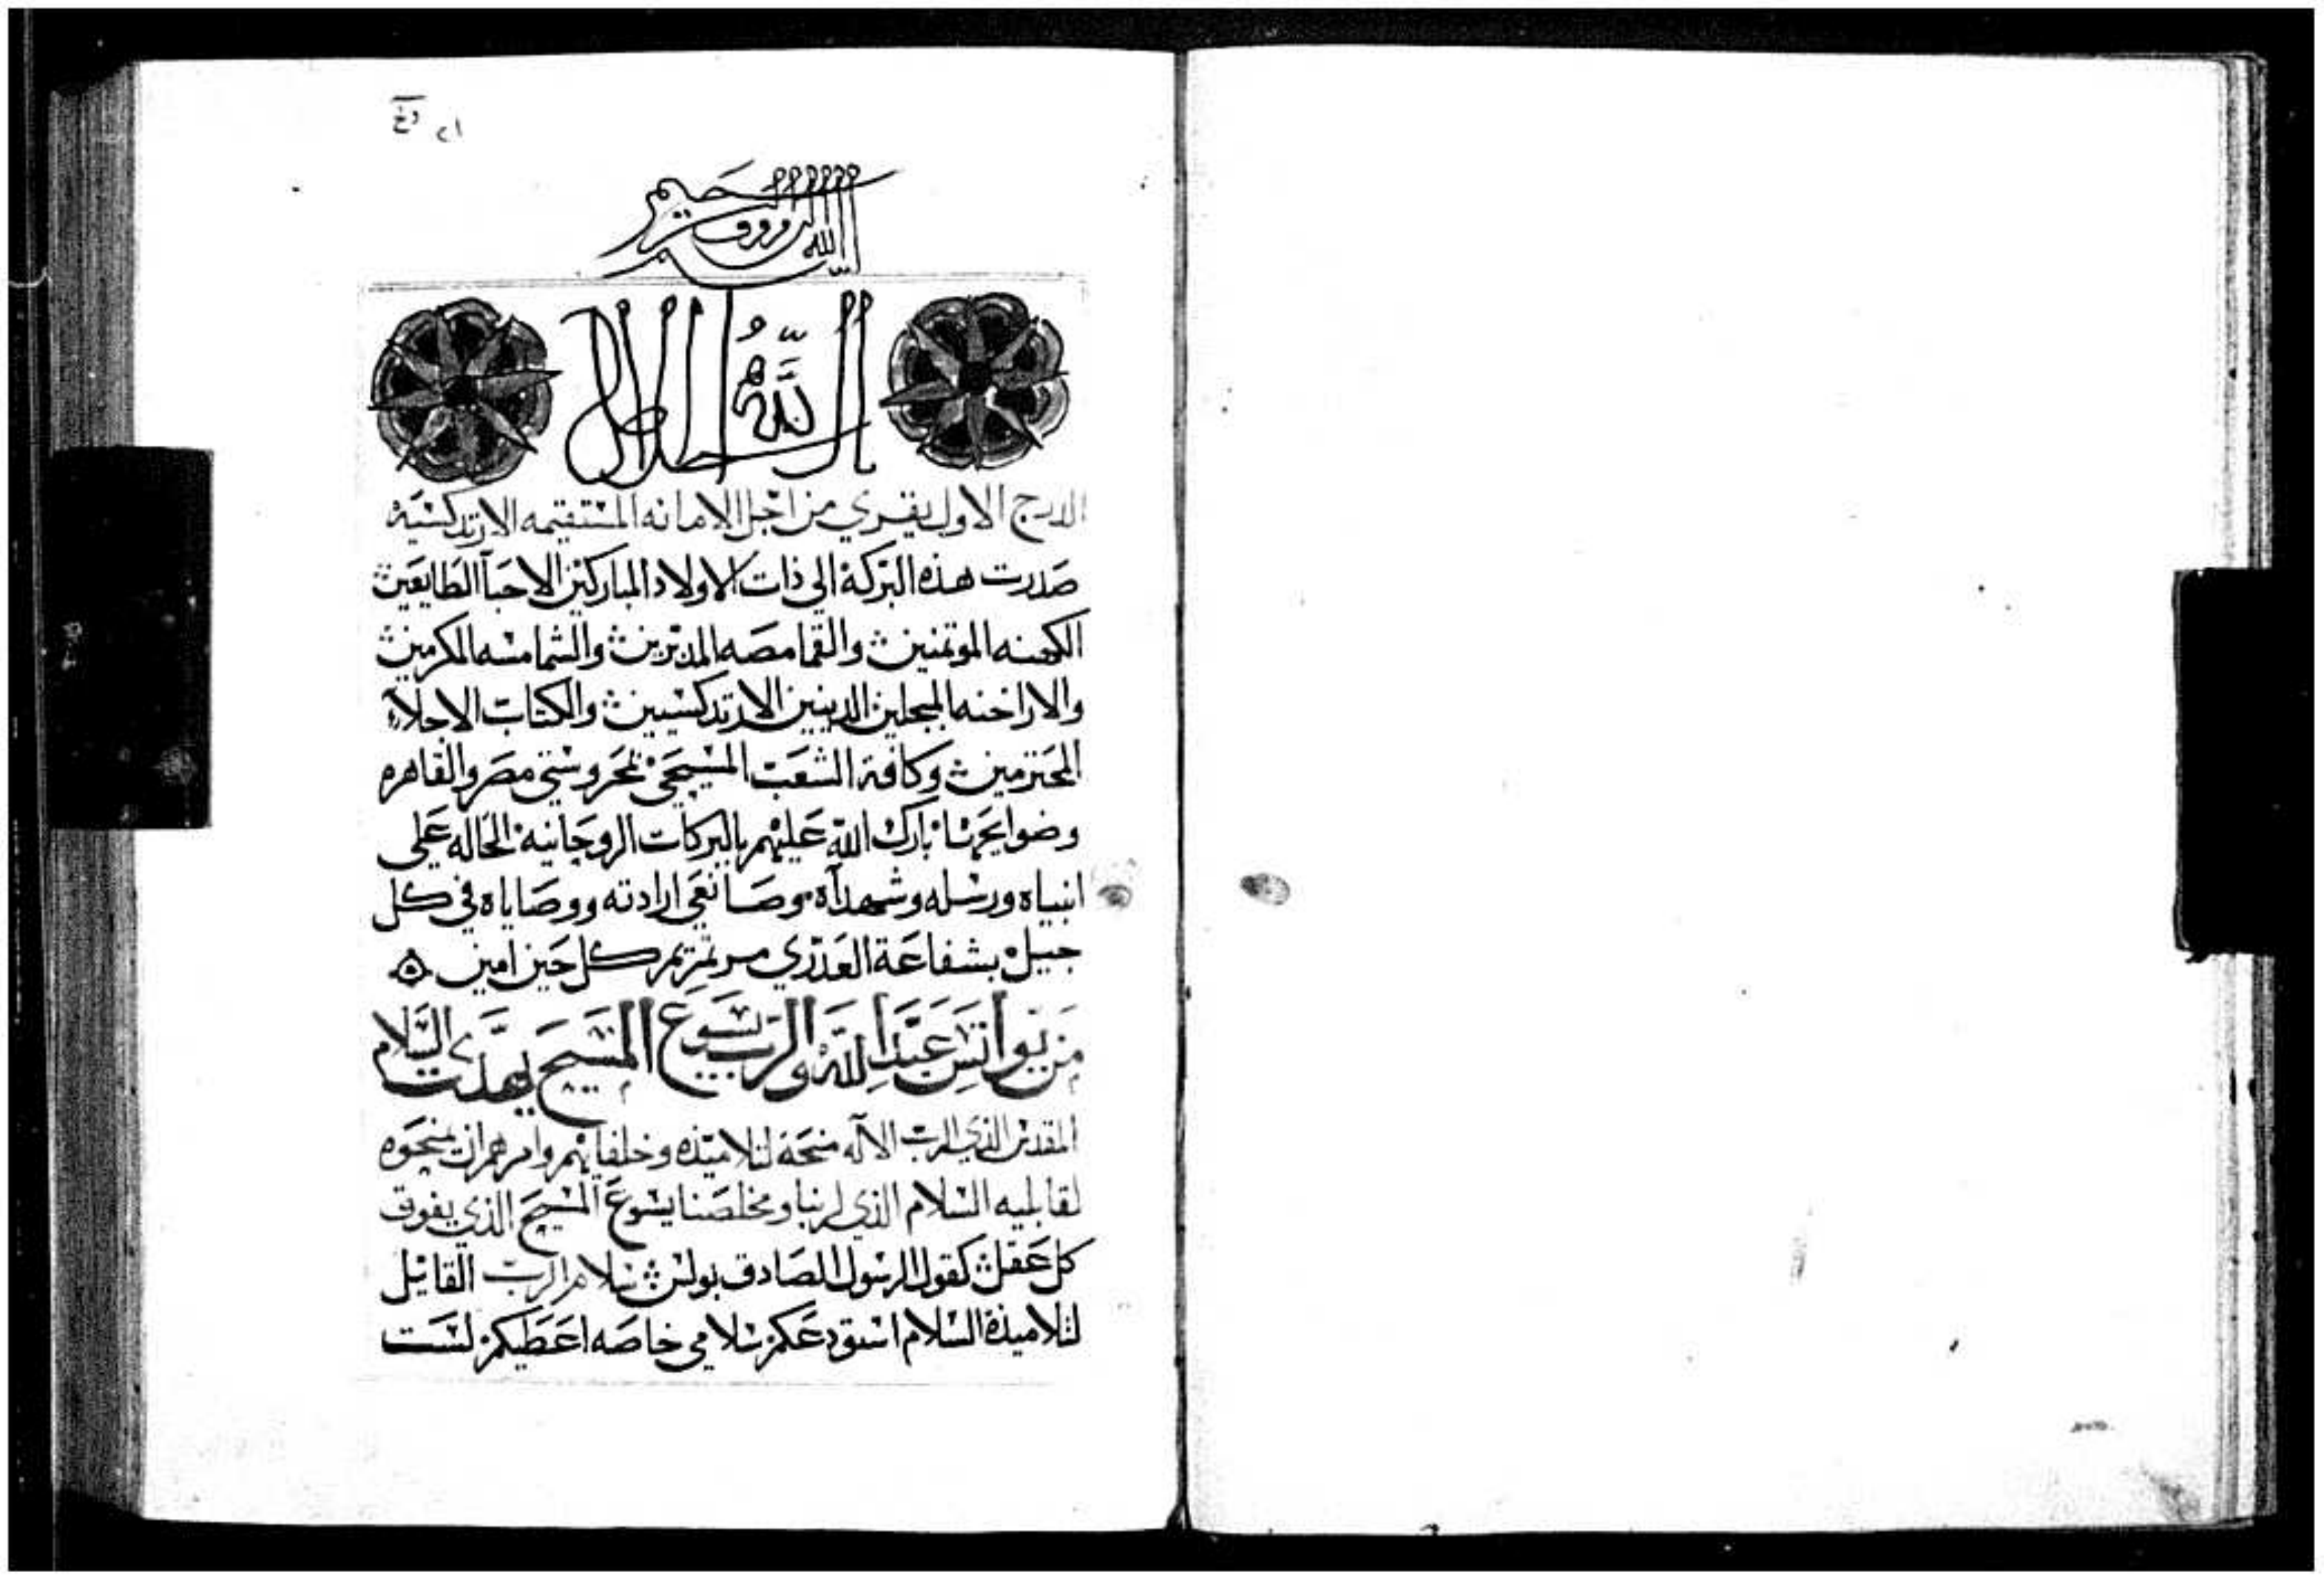 بسم الله الرووف الرحيم
الدرج الاول يقري من اجل الامانه المستقيمه الارتدكسيه
صدرت هذه البركة الي ذات الاولاد المباركين الاحبآ الطايعين
الكهنه الموتمنين والقمامصه المدبرين والشمامسه المكرمين
والاراخنه المبجلين الدينين الارتدكسيين والكتاب الاجلاء
المحترمين وكافة الشعب المسيحي بمحروستي مصر والقاهره
وضواحيها بارك الله عليهم بالبركات الروحانية الحاله علي
انبياه ورسله وشهدآه وصانعي ارادته ووصاياه في كل
جيل بشفاعة العدري مرتمريم كل حين امين
من يوانس عبد الله والرب يسوع المسيح يهدي السلام
المقدس الذي الرب الاله منحة لتلاميذه وخلفايهم وامرهم ان يمنحوه
لقابليه السلام الذي لربنا ومخلصنا يسوع المسيح الذي يفوق
كل عقل كقول الرسول الصادق بولس سلام الرب القايل
لتلاميذة السلام استودعكم سلامي خاصه اعطيكم لست